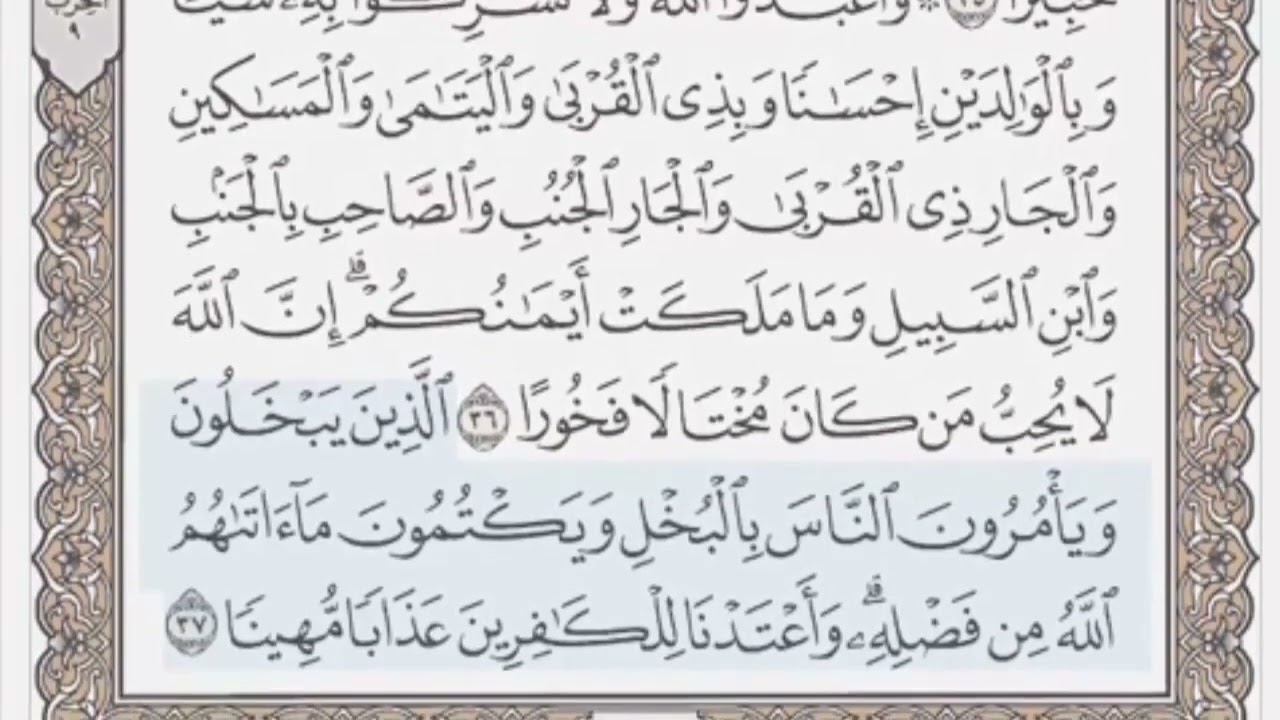 الحزب
٩
خَبِيرًا ۝٣٥ ۞ وَٱعْبُدُوا۟ ٱللَّهَ وَلَا تُشْرِكُوا۟ بِهِۦ شَيْـًٔا
وَبِٱلْوَٰلِدَيْنِ إِحْسَـٰنًا وَبِذِى ٱلْقُرْبَىٰ وَٱلْيَتَـٰمَىٰ وَٱلْمَسَـٰكِينِ
وَٱلْجَارِ ذِى ٱلْقُرْبَىٰ وَٱلْجَارِ ٱلْجُنُبِ وَٱلصَّاحِبِ بِٱلْجَنۢبِ
وَٱبْنِ ٱلسَّبِيلِ وَمَا مَلَكَتْ أَيْمَـٰنُكُمْ ۗ إِنَّ ٱللَّهَ
لَا يُحِبُّ مَن كَانَ مُخْتَالًا فَخُورًا ۝٣٦ ٱلَّذِينَ يَبْخَلُونَ
وَيَأْمُرُونَ ٱلنَّاسَ بِٱلْبُخْلِ وَيَكْتُمُونَ مَآ ءَاتَىٰهُمُ
ٱللَّهُ مِن فَضْلِهِۦ ۗ وَأَعْتَدْنَا لِلْكَـٰفِرِينَ عَذَابًا مُّهِينًا ۝٣٧